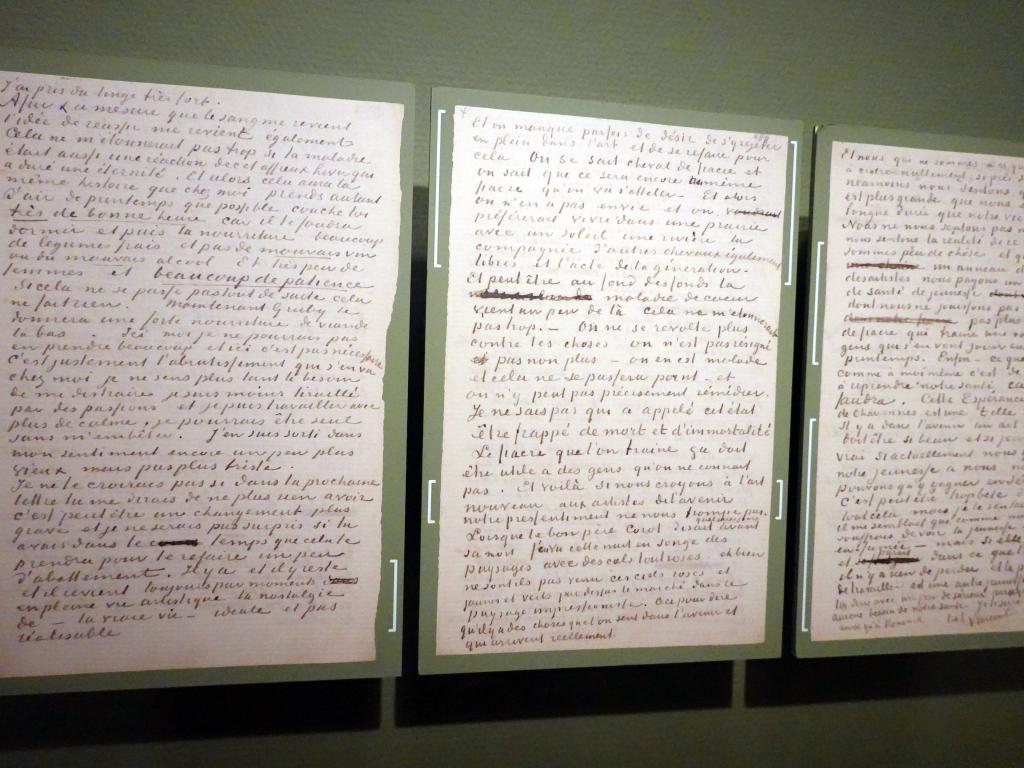 J'ai pris du linge très fort.
A fur & a mesure que le sang me revient
l'idée de réussir me revient également
Cela ne m'étonnerait pas trop si ta maladie
était aussi une réaction de cet affreux hiver qui
a duré une éternité. Et alors cela aura la
même histoire que chez moi prends autant
d'air de printemps que possible couche toi
très de bonne heure car il te faudra
dormir et puis la nourriture beaucoup
de légumes frais et pas de mauvais vin
ou du mauvais alcool Et très peu de
femmes et beaucoup de patience
Si cela ne se passe pas tout de suite cela
ne fait rien. Maintenant Gruby te
donnera une forte nourriture de viande
la bas. Ici moi je ne pourrais pas
en prendre beaucoup et ici c'est pas nécessaire
C'est justement l'abrutissement qui s'en va
chez moi je ne sens plus tant le besoin
de me distraire je suis moins tiraillé
par des passions et je puis travailler avec
plus de calme, je pourrais être seul
sans m'embêter. J'en suis sorti dans
mon sentiment encore un peu plus
vieux mais pas plus triste.
Je ne te croirais pas si dans ta prochaine
lettre tu me dirais de ne plus rien avoir
c'est peut être un changement plus
grave et je ne serais pas surpris si tu
avais dans le temps que cela te
prendra pour te refaire un peu
d'abattement. Il y a et il y reste
et il revient toujours par moments
en pleine vie artistique la nostalgie
de — la vraie vie — idéale et pas
réalisable
Et on manque parfois de désir de s'y rejeter
en plein dans l'art et de se refaire pour
cela On se sait cheval de fiacre et
on sait que ce sera encore au même
fiacre qu'on va s'atteler. Et alors
on n'en a pas envie et on
préférerait vivre dans une prairie
avec un soleil une rivière la
compagnie d'autres chevaux également
libres et l'acte de la génération.
Et peut être au fond des fonds la
maladie de coeur
vient un peu de là cela ne m'étonnerait
pas trop. — On ne se révolte plus
contre les choses on n'est pas résigné
pas non plus — on en est malade
et cela ne se passera point — et
on n'y peut pas précisement remédier.
Je ne sais pas qui a appelé cet état
être frappé de mort et d'immortalité
Le fiacre que l'on traine ça doit
être utile à des gens qu'on ne connait
pas. Et voilà si nous croyons à l'art
nouveau aux artistes de l'avenir
notre pressentiment ne nous trompe pas.
Lorsque le bon père Corot disait avant
sa mort j'ai vu cette nuit en songe des
paysages avec des ciels tout roses et bien
ne sont ils pas venu ces ciels roses et
jaunes et verts par dessus le marché dans le
paysage impressioniste. Ceci pour dire
qu'il y a des choses que l'on sens dans l'avenir et
qui arrivent réellement.
Et nous qui ne sommes
néanmoins nous sentons
est plus grande que nous
longue durée que notre vie
Nous ne nous sentons pas
nous sentons la réalité de ce
sommes peu de chose et
un anneau de
des artistes nous payons un
de santé de jeunesse
dont nous ne jouissons pas
pas plus
de fiacre qui traine
gens qui s'en vont jouir
printemps. Enfin — ce que
comme à moi même c'est de
à reprendre notre santé car
faudra. Cette Espérance
de Chavannes est une telle
Il y a dans l'avenir un art
doit être si beau et si jeune
vrai si actuellement nous y
notre jeunesse à nous
pouvons qu'y gagner en
C'est peut être trop bête de
tout cela mais je le sentais
il me semblait que comme
souffrais de voir ta jeunesse
en fumée — si elle
et dans ce que l'
il n'y a rien de perdu et la
de travailler est une autre jeunesse